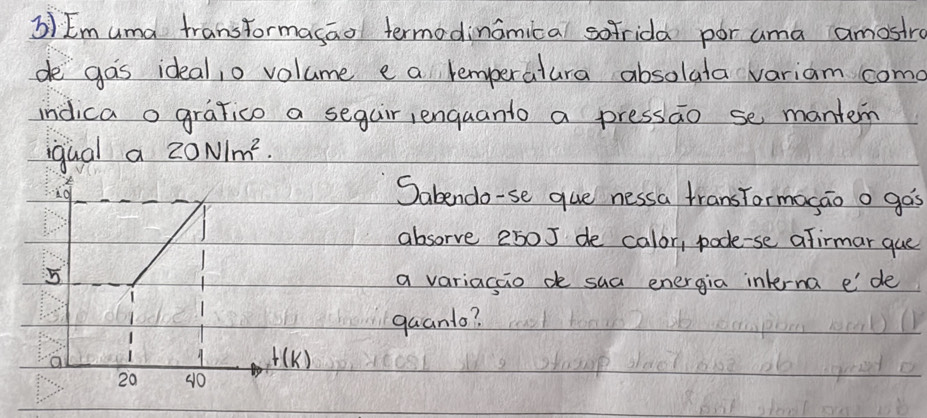 3) Em uma transformação termodinâmica sofrida por uma amostra
de gás ideal, o volume e a temperatura absoluta variam como
indica o gráfico a seguir, enquanto a pressão se mantém
igual a 20N/m².
Sabendo-se que nessa transformação o gás
absorve 250J de calor, pode-se afirmar que
a variação de sua energia interna é de
quanto?
10
5
0
20 40 t(K)